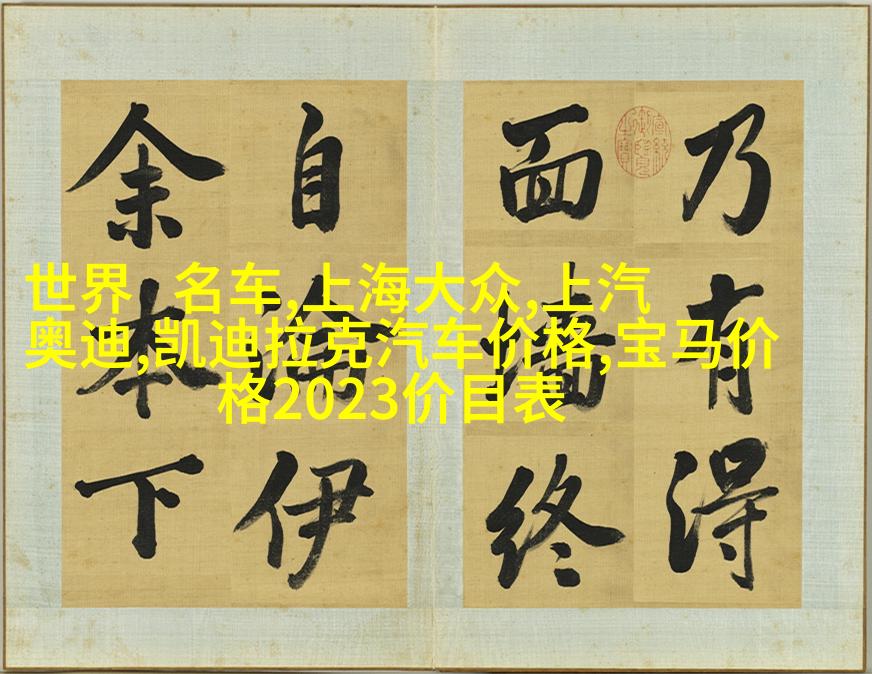 世界 名车,上海大众,上汽
奥迪,凯迪拉克汽车价格,宝马价
格2023价目表
乃有得
面墙终
自伊
余本下